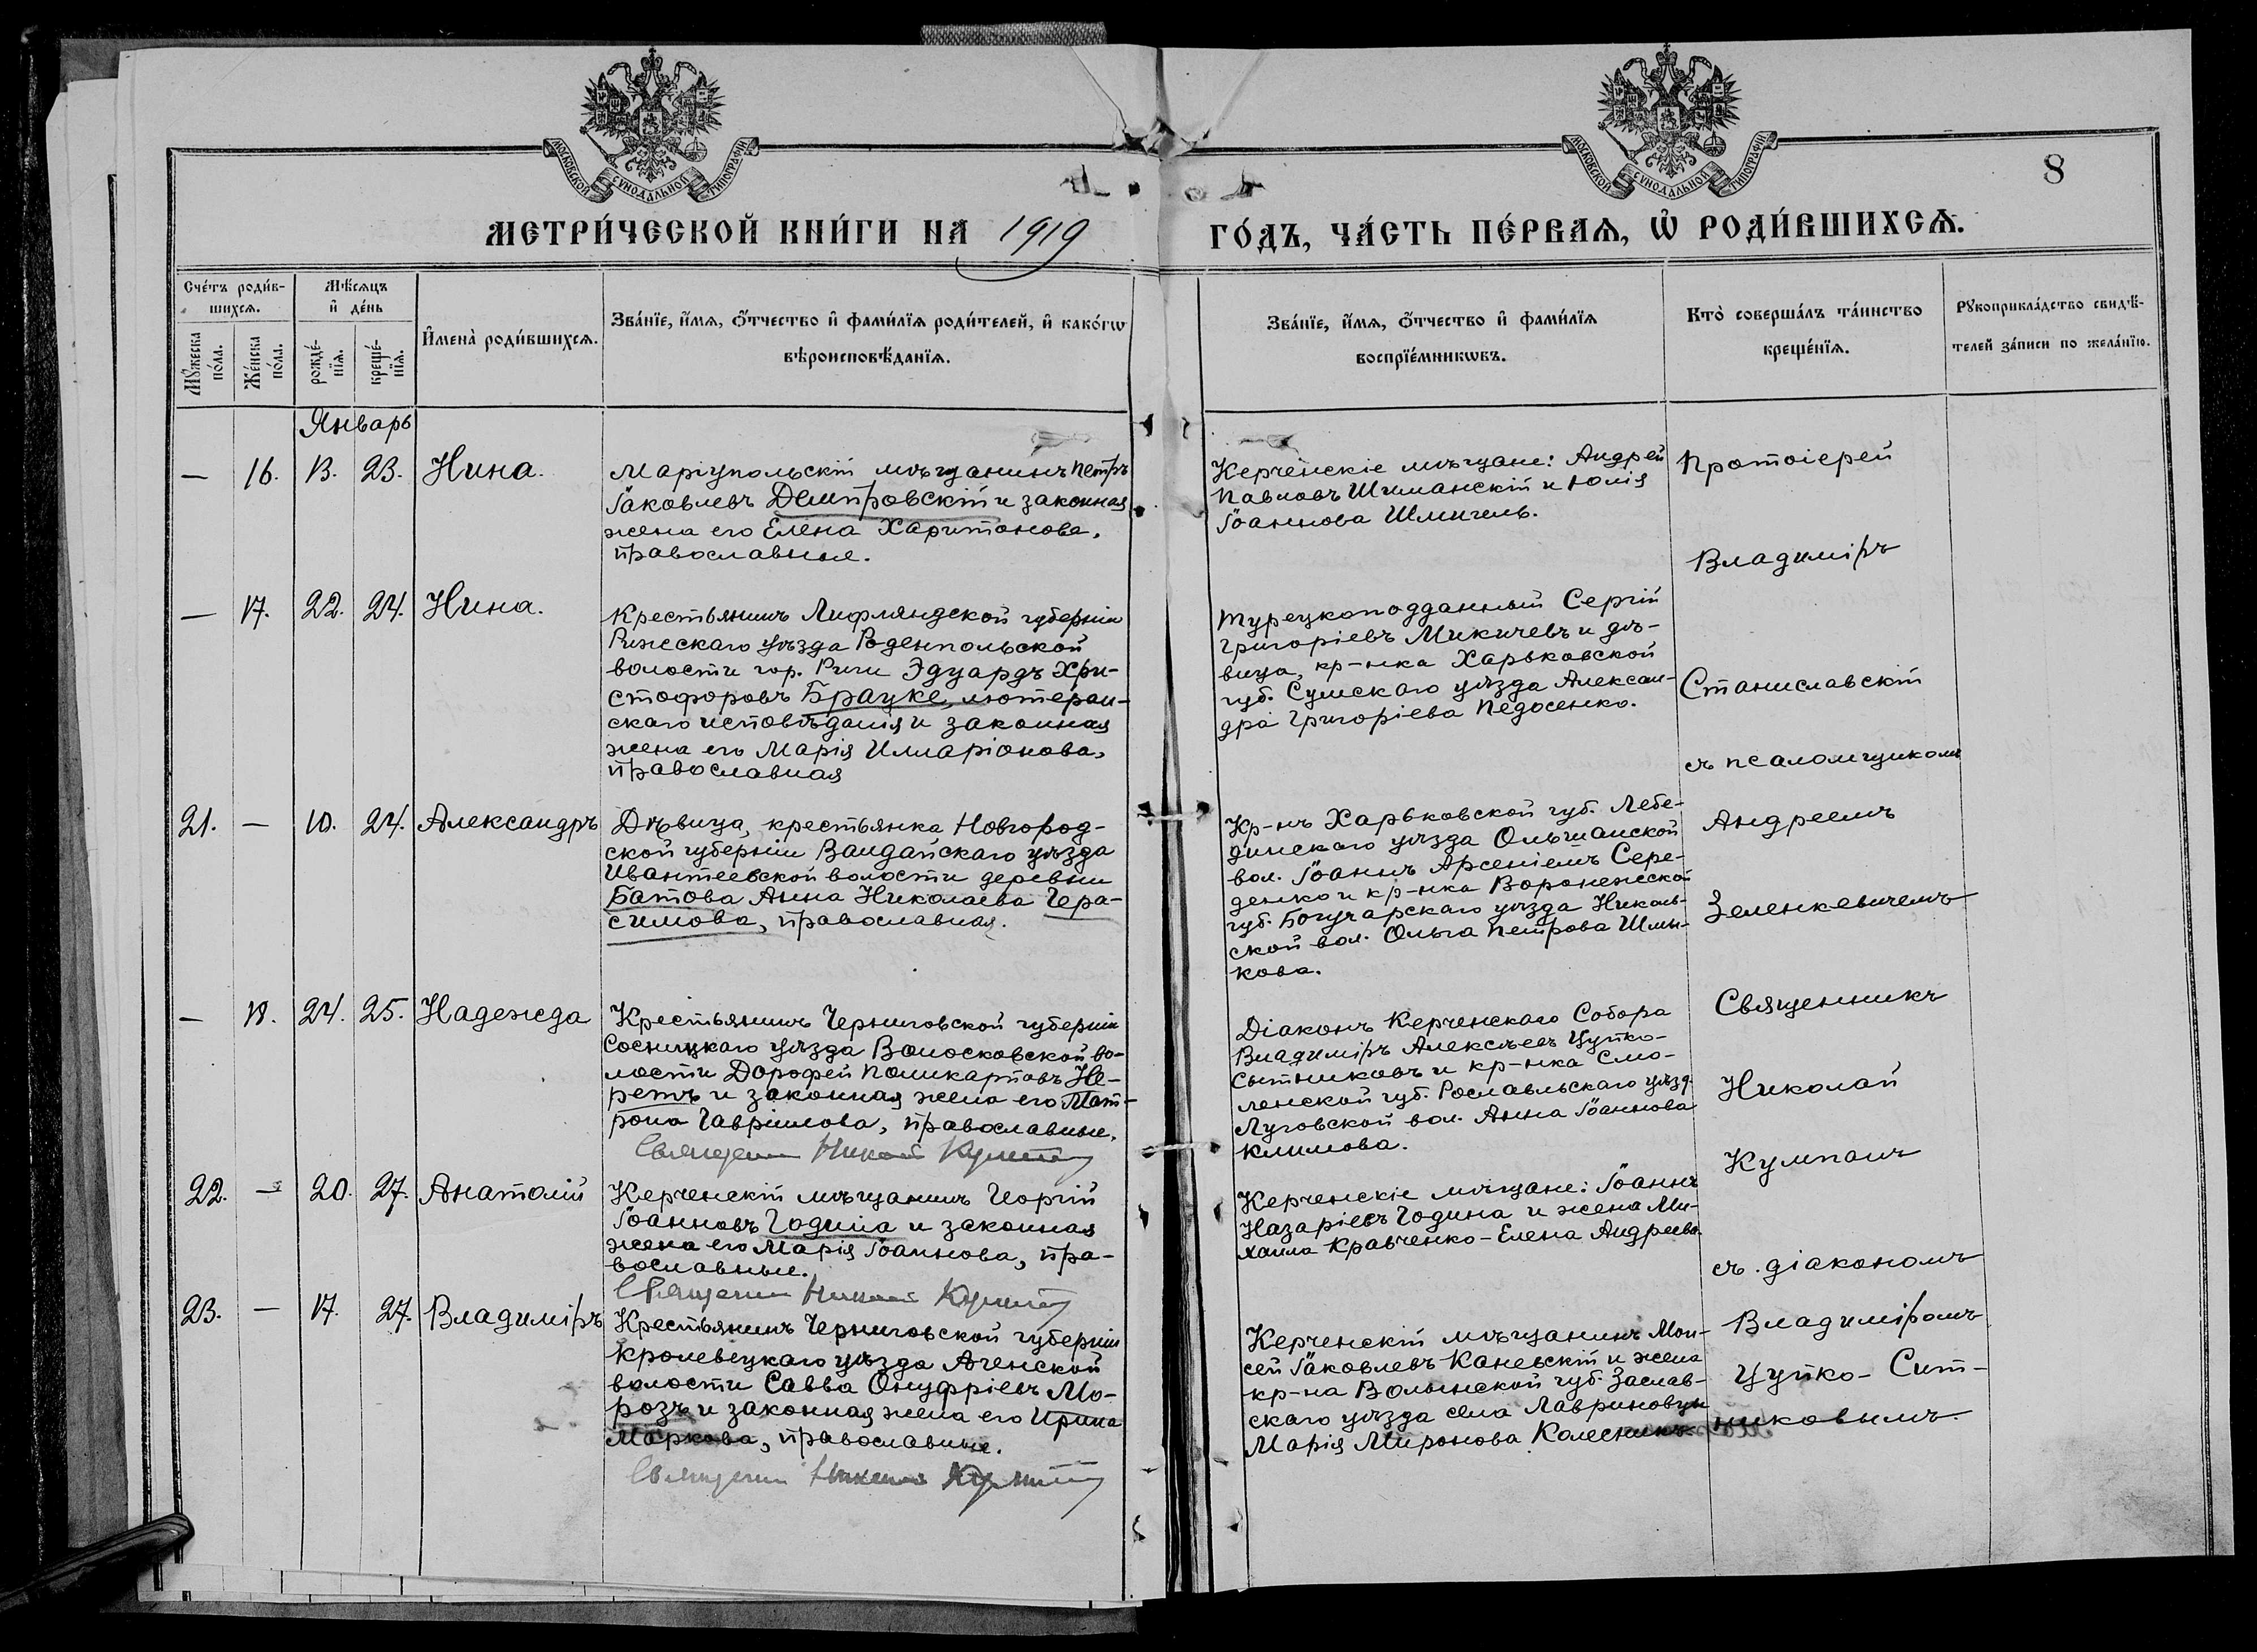 МОСКОВСКОЙ СѴНОДАЛЬНОЙ ТИПОГРАФІИ
МОСКОВСКОЙ СѴНОДАЛЬНОЙ ТИПОГРАФІИ
8
МЕТРИ́ЧЕСКОЙ КНИ́ГИ НА 1919
ГО́ДЪ, ЧА́СТЬ ПЕ́РВАѦ, Ѡ҆ РОДИ́ВШИХСѦ.
Сче́тъ роди́в-
шихсѧ.
Мѣ́сѧцъ
и҆ де́нь
Мꙋ́жеска
по́ла.
Же́нска
по́ла.
рожде́-
нїѧ.
креще́-
нїѧ.
И҆мена̀ роди́вшихсѧ.
Зва́нїе, и҆́мѧ, ѻ҆́тчество и҆ фами́лїѧ роди́телей, и҆ како́гѡ
вѣроисповѣ́данїѧ.
Зва́нїе, и҆́мѧ, ѻ҆́тчество и҆ фами́лїѧ
воспрїе́мникѡвъ.
Кто̀ соверша́лъ та́инство
креще́нїѧ.
Рꙋкоприкла́дство свидѣ́-
телей за́писи по жела́нїю.
Январь
— 16. 13. 23. Нина.
Маріупольскій мѣщанинъ Петръ
Іаковлевъ Дмитровскій и законная
жена его Елена Харитонова,
православные.
Керченскіе мѣщане: Андрей
Павловъ Шиманскій и Юлія
Іоаннова Шмигель.
Протоіерей
Владиміръ
— 17. 22. 24. Нина.
Крестьянинъ Лифляндской губерніи
Рижскаго уѣзда Роденпольской
волости гор. Риги Эдуардъ Хри-
стофоровъ Брауке, лютеран-
скаго исповѣданія и законная
жена его Марія Илларіонова,
православная
Турецкоподданный Сергій
Григоріевъ Микичевъ и дѣ-
вица, кр-нка Харьковской
губ. Сумскаго уѣзда Алексан-
дра Григоріева Педосенко.
Станиславскій
съ псаломщикомъ
21. — 10. 24. Александръ
Дѣвица, крестьянка Новгород-
ской губерніи Валдайскаго уѣзда
Ивантеевской волости деревни
Батова Анна Николаева Гера-
симова, православная.
Кр-нъ Харьковской губ. Лебе-
динскаго уѣзда Ольшанской
вол. Іоаннъ Арсеніевъ Сере-
денко и кр-нка Воронежской
губ. Богучарскаго уѣзда Николь-
ской вол. Ольга Петрова Шмы-
кова.
Андреемъ
Зеленкевичемъ
— 18. 24. 25. Надежда
Крестьянинъ Черниговской губерніи
Сосницкаго уѣзда Волосковской во-
лости Дорофей Поликарповъ Не-
ретъ и законная жена его Мат-
рона Гавріилова, православные.
Священникъ Николай Кумпанъ
Діаконъ Керченскаго Собора
Владиміръ Алексѣевъ Цупко-
Сытниковъ и кр-нка Смо-
ленской губ. Рославльскаго уѣзд.
Луговской вол. Анна Іоаннова
Климова.
Священникъ
Николай
Кумпанъ
22. — 20. 27. Анатолій
Керченскій мѣщанинъ Георгій
Іоанновъ Година и законная
жена его Марія Іоаннова, пра-
вославные.
Священникъ Николай Кумпанъ
Керченскіе мѣщане: Іоаннъ
Назаріевъ Година и жена Ми-
хаила Кравченко-Елена Андреева
съ діакономъ
23. — 17. 27. Владиміръ
Крестьянинъ Черниговской губерніи
Кролевецкаго уѣзда Аленской
волости Савва Онуфріевъ Мо-
розъ и законная жена его Ирина
Маркова, православные.
Священникъ Николай Кумпанъ
Керченскій мѣщанинъ Мои-
сей Іаковлевъ Каневскій и жена
кр-на Волынской губ. Заслав-
скаго уѣзда села Лавриновцы
Марія Миронова Колесникъ
Владиміромъ
Цупко-Сит-
никовымъ.